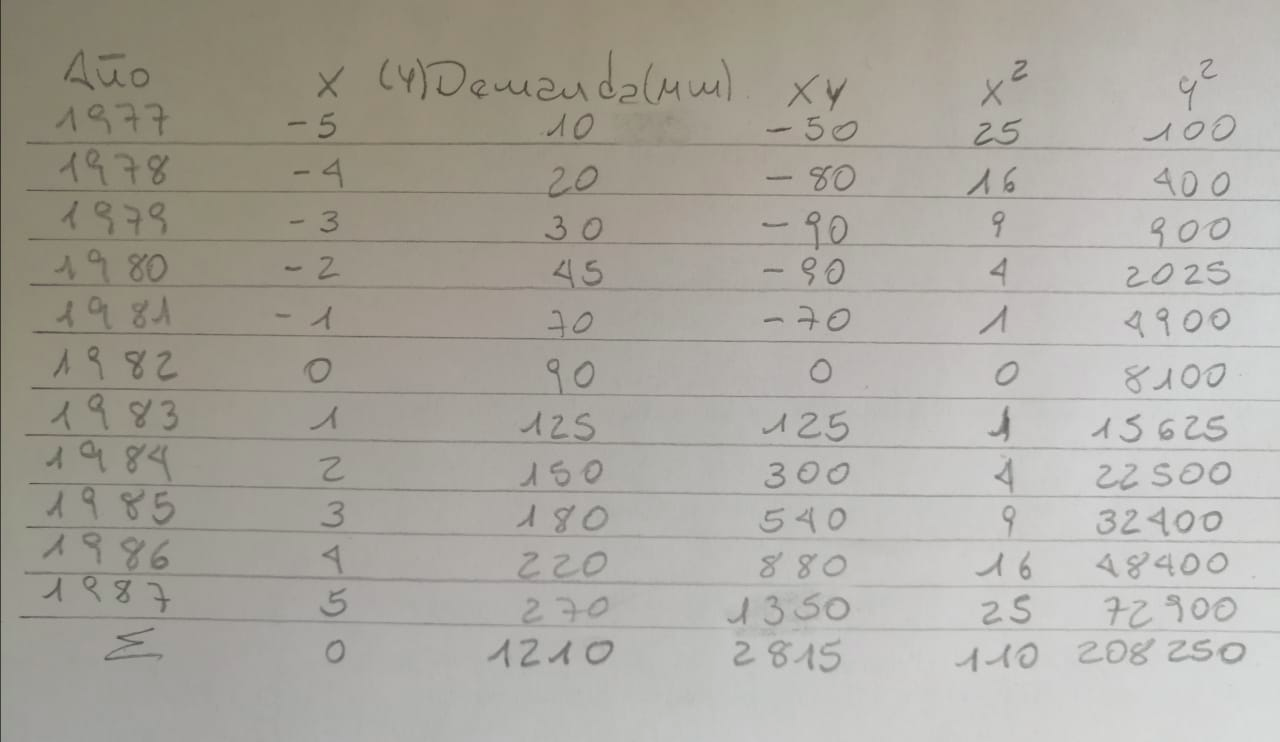 Año X (Y)Demanda(MM) XY X² Y²
1977 -5 10 -50 25 100
1978 -4 20 -80 16 400
1979 -3 30 -90 9 900
1980 -2 45 -90 4 2025
1981 -1 70 -70 1 4900
1982 0 90 0 0 8100
1983 1 125 125 1 15625
1984 2 150 300 4 22500
1985 3 180 540 9 32400
1986 4 220 880 16 48400
1987 5 270 1350 25 72900
Σ 0 1210 2815 110 208250